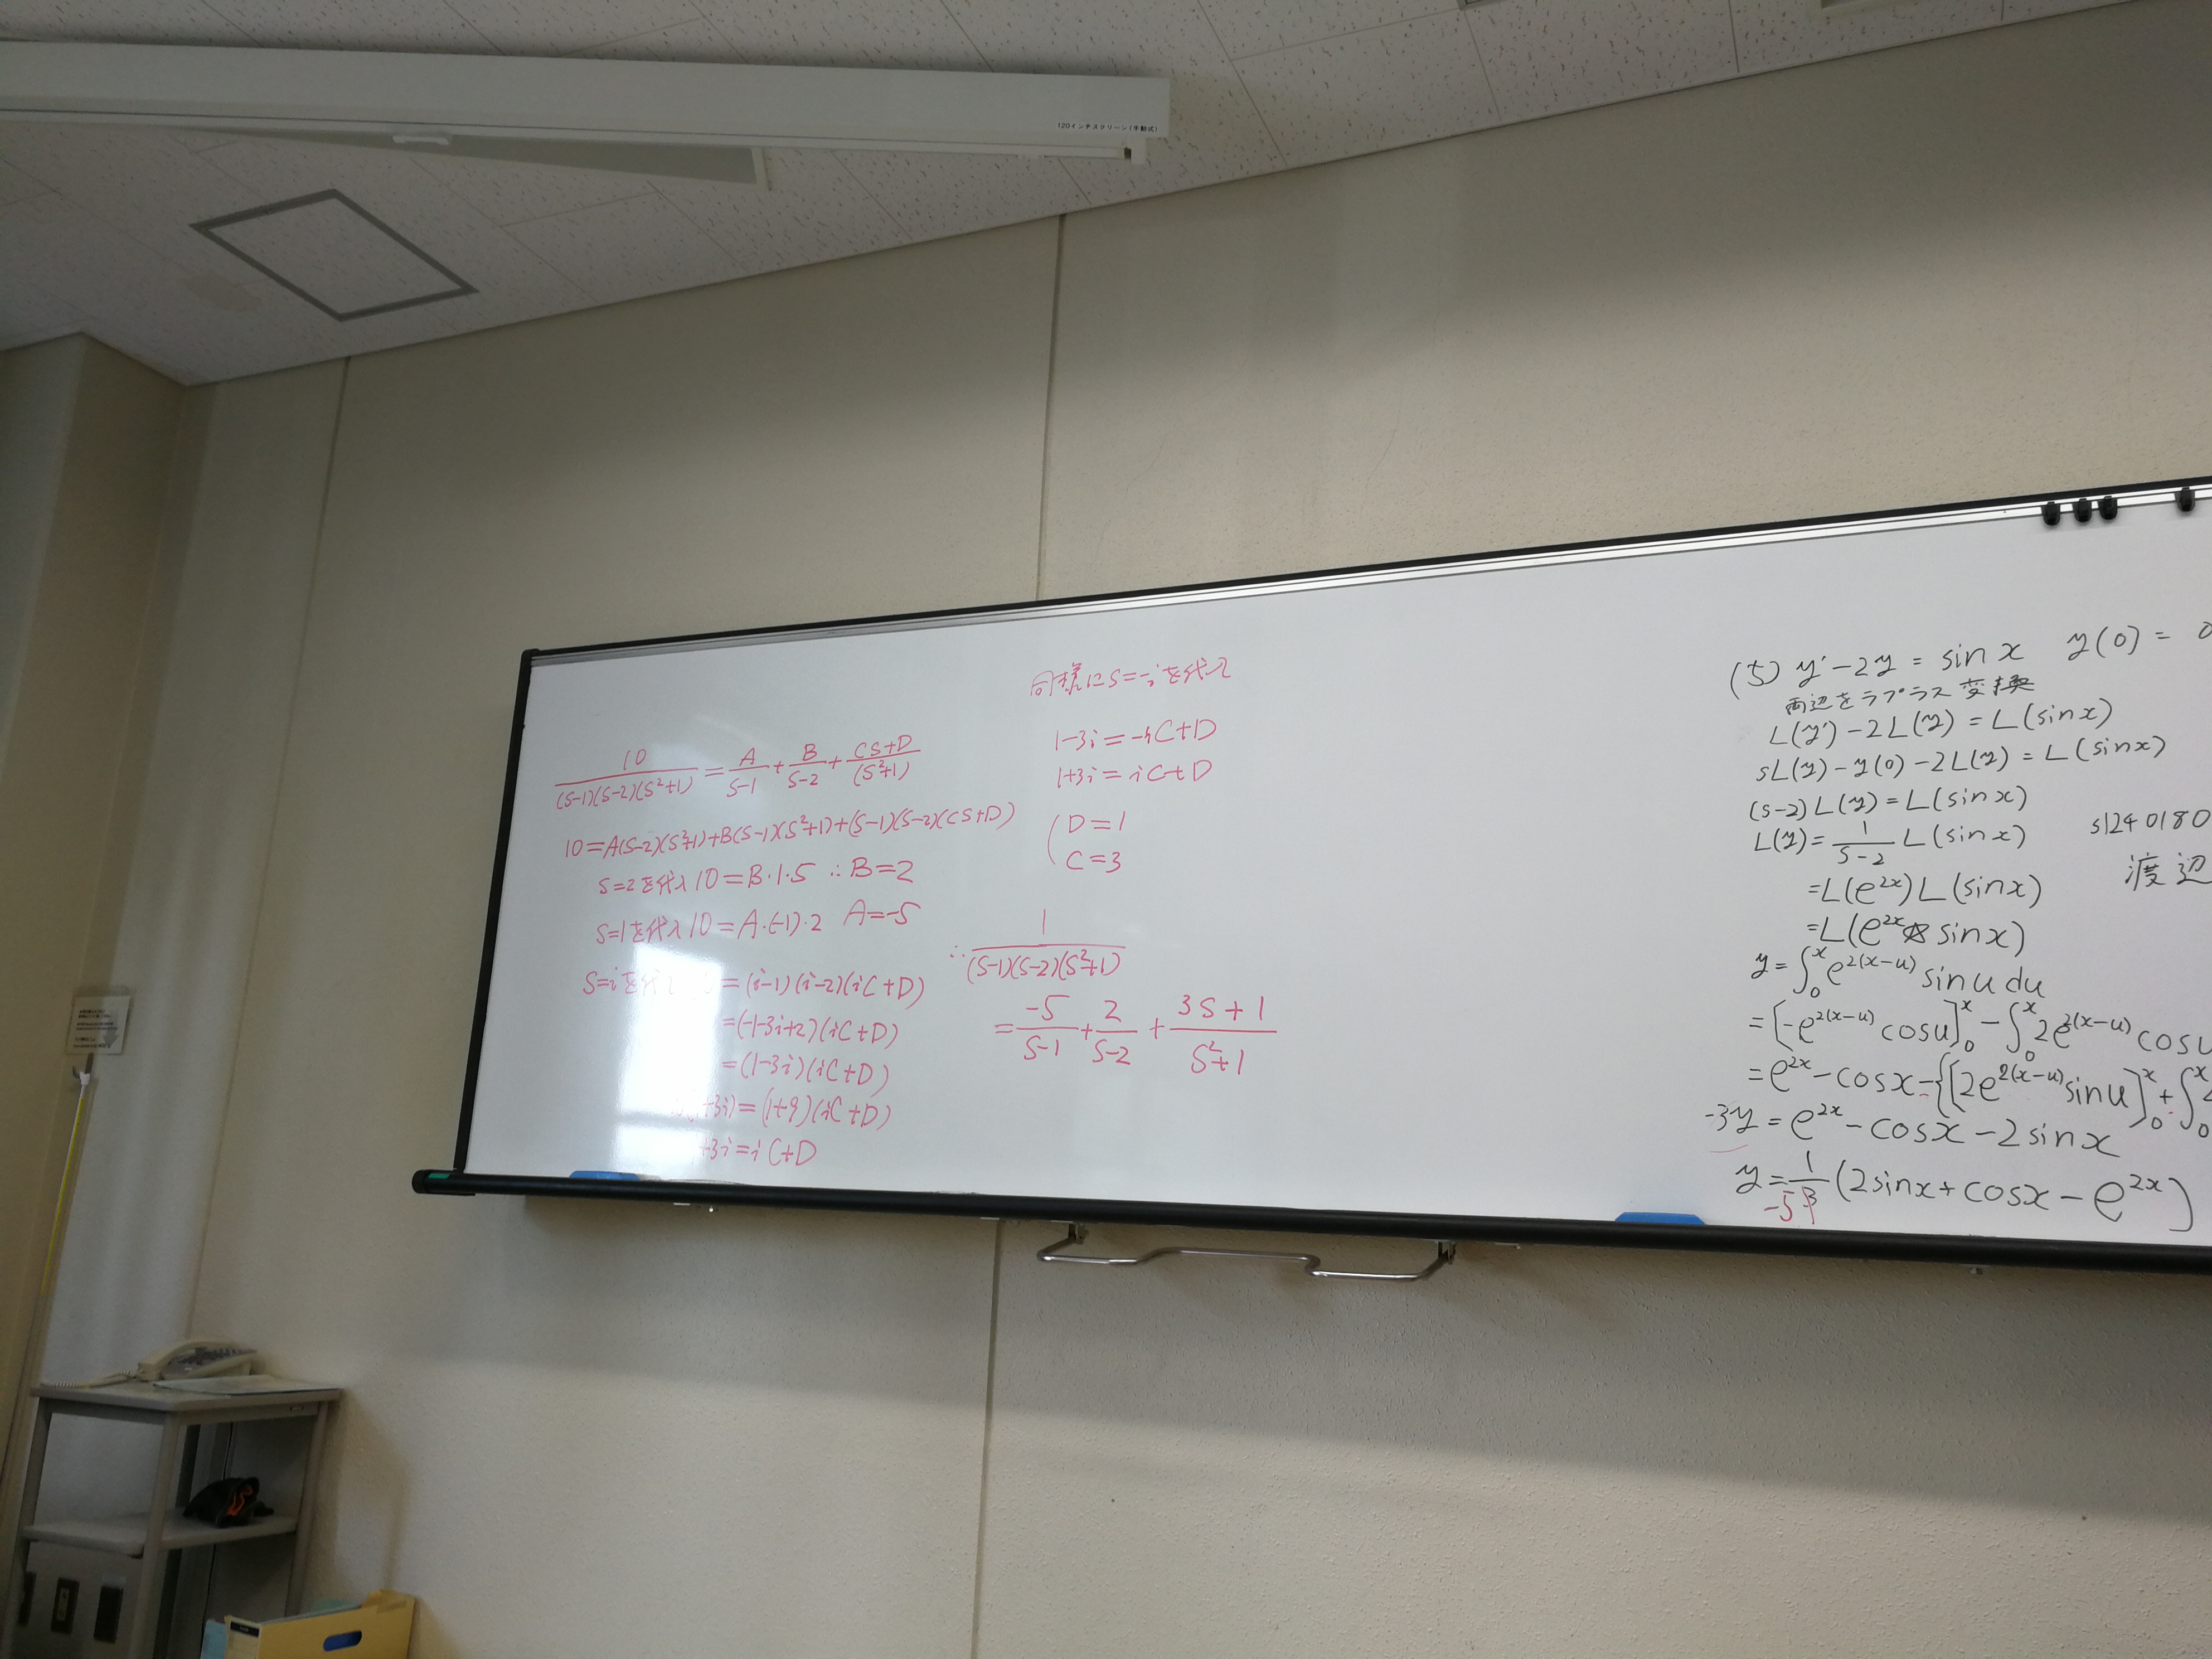 120インチスクリーン(手動式)
10/((S-1)(S-2)(S²+1)) = A/(S-1) + B/(S-2) + (CS+D)/(S²+1)
10=A(S-2)(S²+1)+B(S-1)(S²+1)+(S-1)(S-2)(CS+D)
S=2を代入 10=B・1・5 ∴B=2
S=1を代入 10=A・(-1)・2 A=-5
S=iを代入 =(i-1)(i-2)(iC+D)
=(-1-3i+2)(iC+D)
=(1-3i)(iC+D)
+3i)=(1+9)(iC+D)
+3i=iC+D
同様にS=-iを代入
1-3i=-iC+D
1+3i=iC+D
D=1
C=3
∴ 1/((S-1)(S-2)(S²+1))
= -5/(S-1) + 2/(S-2) + (3S+1)/(S²+1)
(5) y'-2y = sin x y(0) = 0
両辺をラプラス変換
L(y')-2L(y) = L(sinx)
sL(y)-y(0)-2L(y) = L(sinx)
(s-2)L(y)=L(sinx)
L(y)= 1/(s-2) L(sinx)
=L(e^{2x})L(sinx)
=L(e^{2x}* sinx)
y=∫₀ˣ e^{2(x-u)} sin u du
=[-e^{2(x-u)} cosu]₀ˣ - ∫₀ˣ 2e^{2(x-u)} cosu
=e^{2x}-cosx-{[2e^{2(x-u)} sinu]₀ˣ + ∫₀ˣ
-3y = e^{2x}-cosx-2sinx
y= 1/3 (2sinx+cosx-e^{2x})
-5
s1240180
渡辺